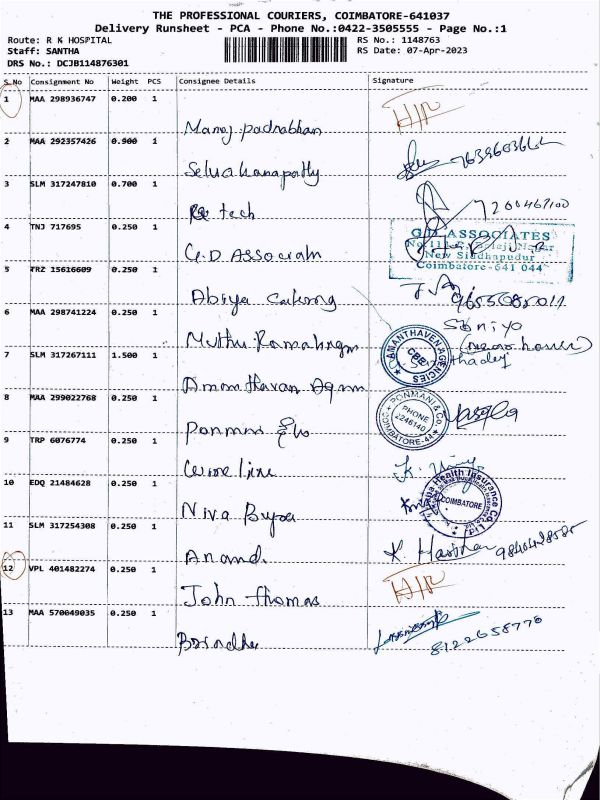 THE PROFESSIONAL COURIERS, COIMBATORE-641037
Delivery Runsheet - PCA - Phone No.:0422-3505555 - Page No.:1
Route: R K HOSPITAL RS No.: 1148763
Staff: SANTHA RS Date: 07-Apr-2023
DRS No.: DCJB114876301
S.No Consignment No Weight PCS Consignee Details Signature
1 MAA 298936747 0.200 1
Manoj padnabhan
2 MAA 292357426 0.900 1
Selvakanapathy
3 SLM 317247810 0.700 1
tech 7200467100
4 TNJ 717695 0.250 1
G.D ASSOCIATES
New Siddhapudur
Coimbatore-641 044
G.D Associam
5 TRZ 15616609 0.250 1
9655682011
6 MAA 298741224 0.250 1
Muthu Ramalingm
(near house)
7 SLM 317267111 1.500 1
AMANTHAVEN AGENCIES
CBE
8 MAA 299022768 0.250 1
PONMANI & CO.
PHONE
2246140
COIMBATORE-44
Ponmani
9 TRP 6076774 0.250 1
10 EDQ 21484628 0.250 1
Health Insurance Co
COIMBATORE
Niva Bupa
11 SLM 317254308 0.250 1
Anand. K.
12 VPL 401482274 0.250 1
John thomas
13 MAA 570049035 0.250 1
Brindha 8122658770